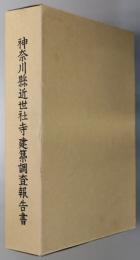 神奈川縣近世社寺建築調査報告書